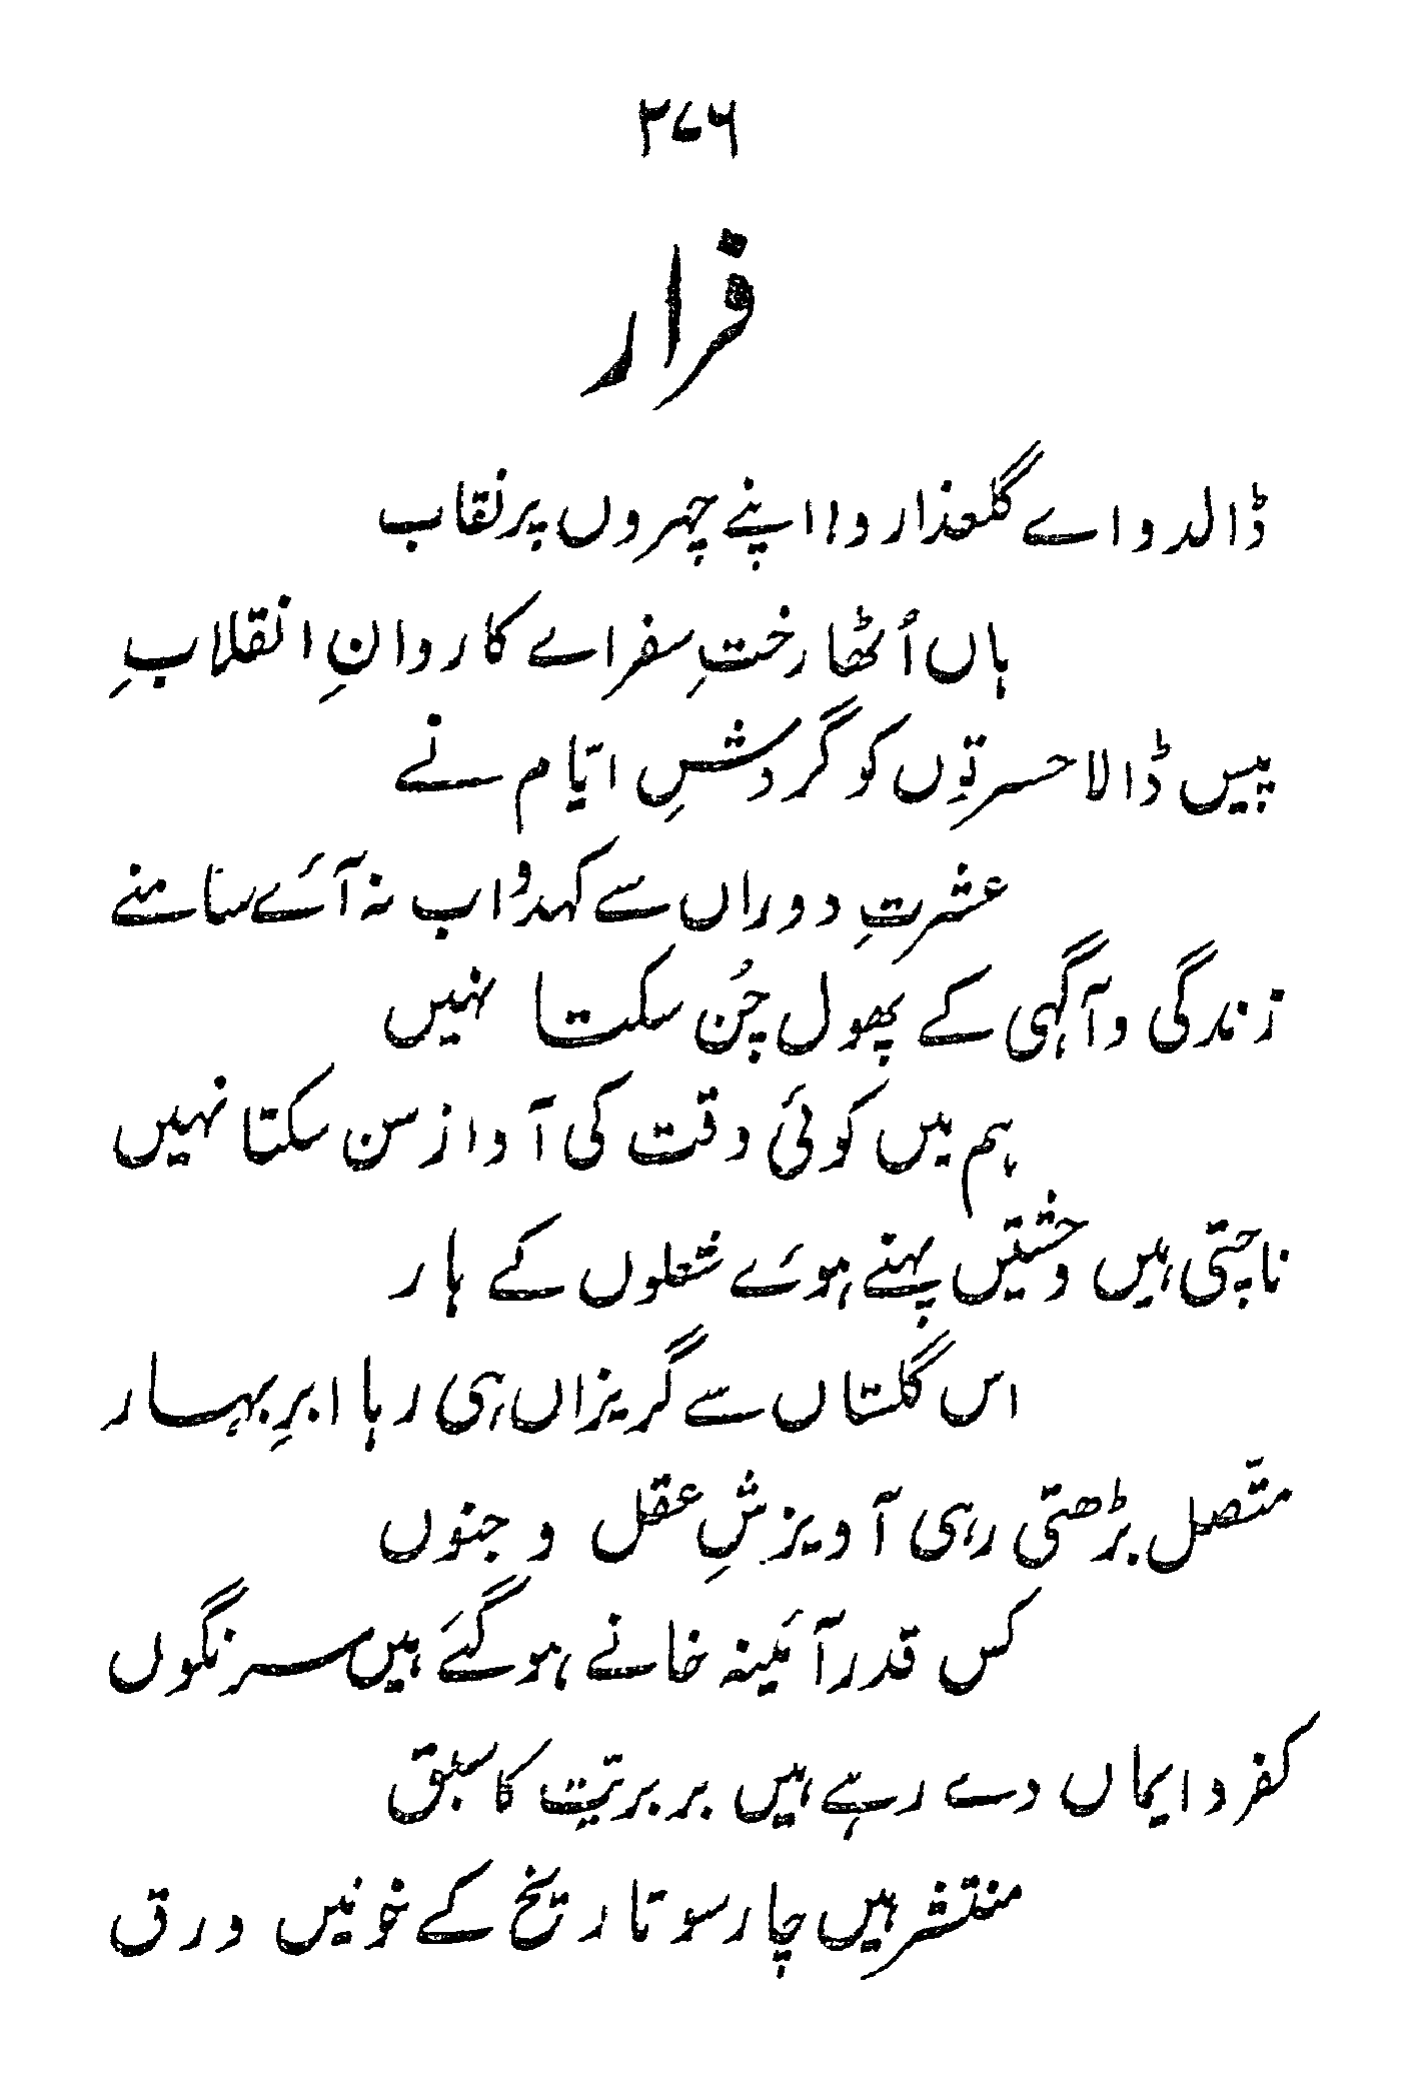 ۳۷۶
فرار
ڈالدو اے گلعذارو! اپنے چہروں پر نقاب
ہاں اُٹھا رختِ سفر اے کاروانِ انقلابِ
پیس ڈالا حسرتوں کو گردشِ ایّام نے
عشرتِ دوراں سے کہدو اب نہ آئے سامنے
زندگی و آگہی کے پھول چُن سکتا نہیں
ہم میں کوئی وقت کی آواز سن سکتا نہیں
ناچتی ہیں وحشتیں پہنے ہوئے شعلوں کے ہار
اس گلستاں سے گریزاں ہی رہا ابرِ بہار
متّصل بڑھتی رہی آویزشِ عقل و جنوں
کس قدر آئینہ خانے ہو گئے ہیں سرنگوں
کفر و ایماں دے رہے ہیں بربریّت کا سبق
منتشر ہیں چار سو تاریخ کے خونیں ورق